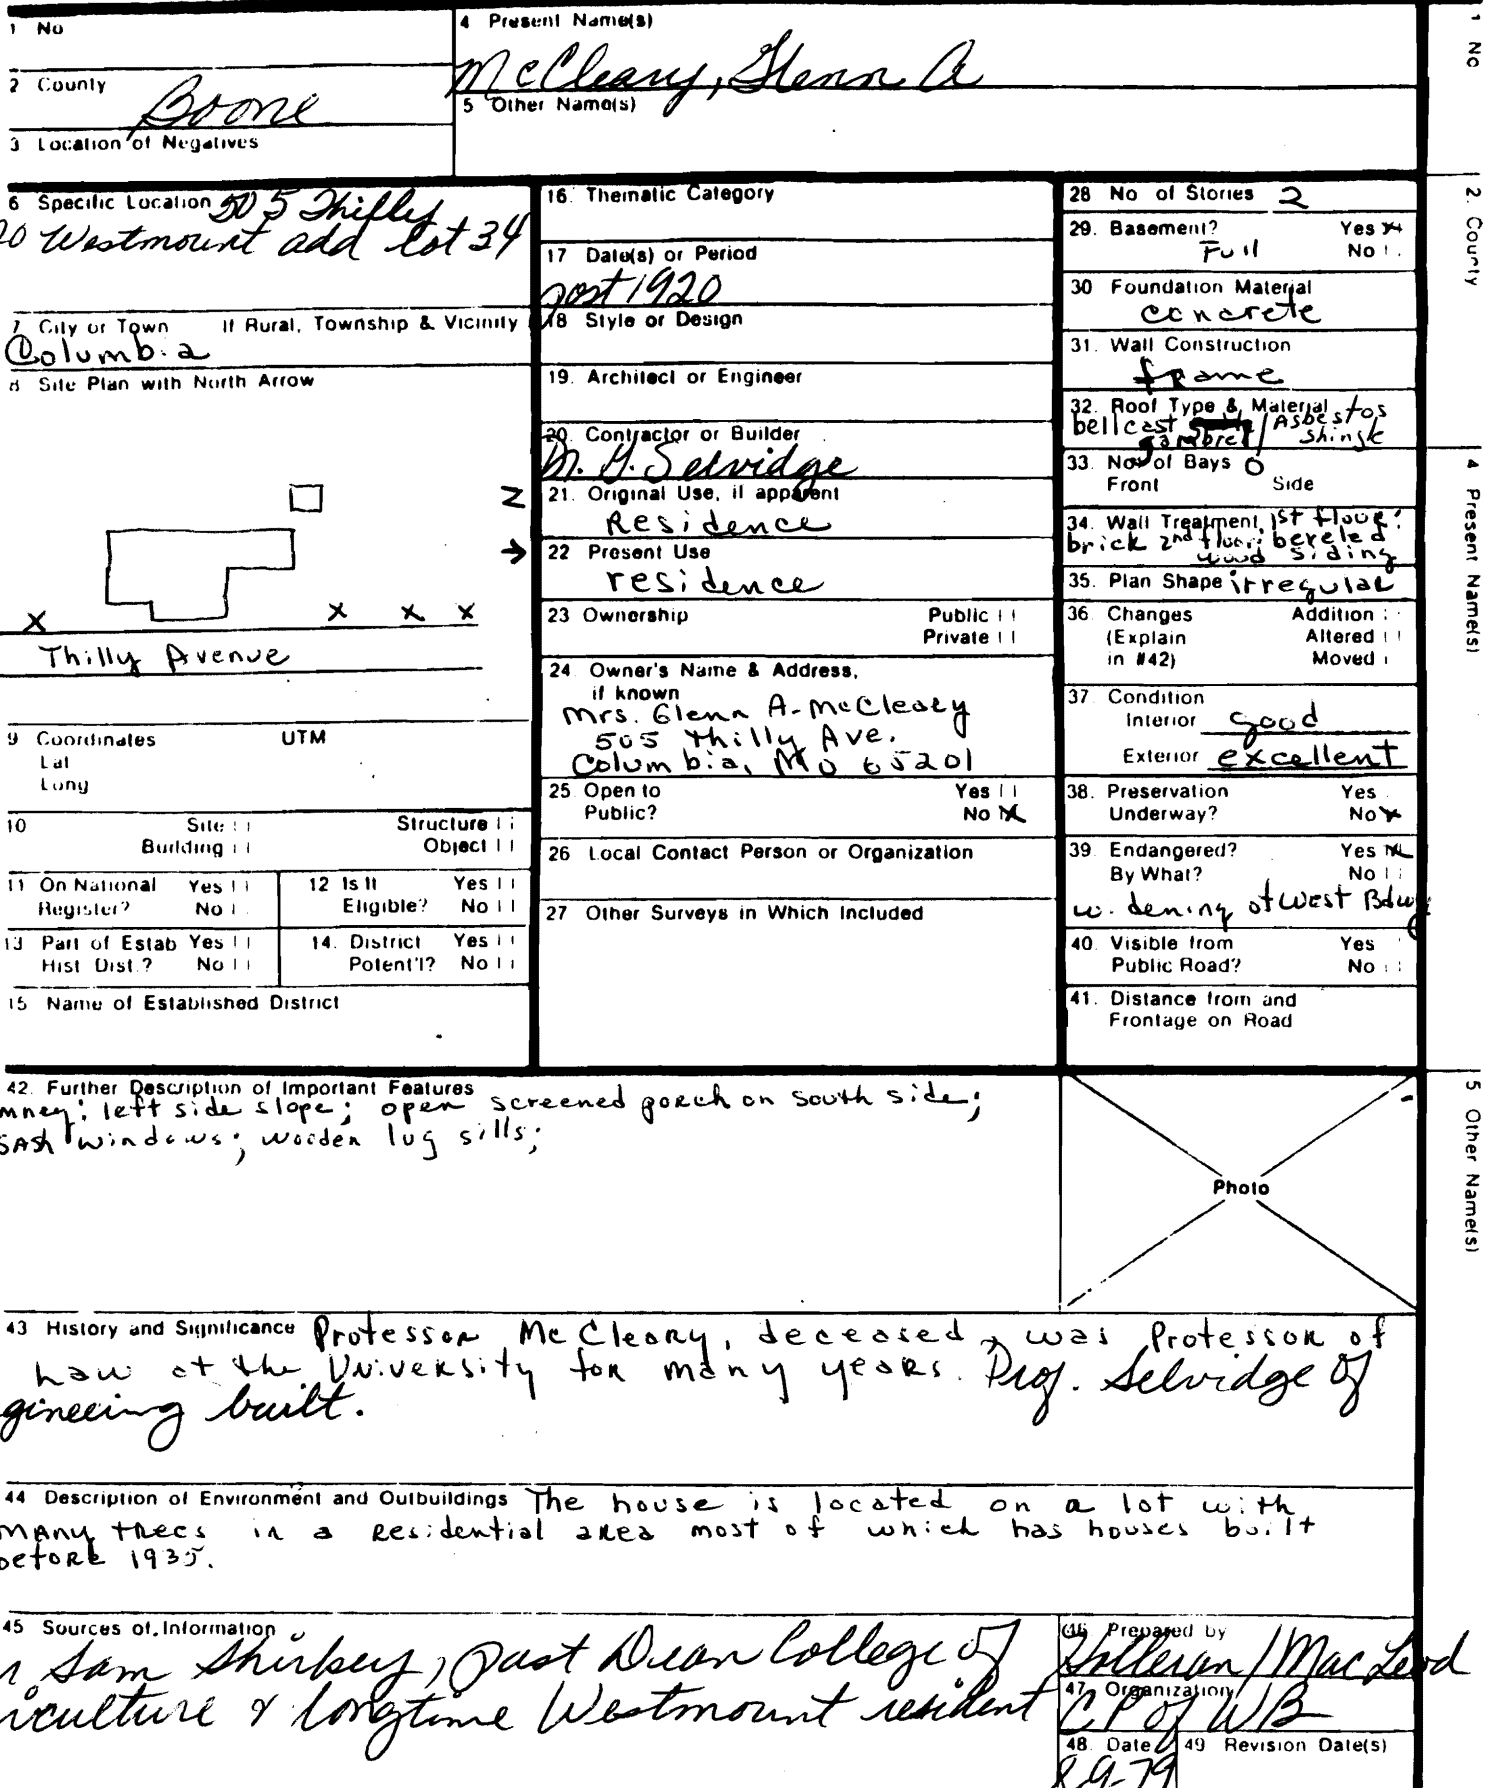 1 No
4 Present Name(s)
McCleary, Glenn A
2 County
Boone
5 Other Name(s)
3 Location of Negatives
6 Specific Location 505 Thilly
Westmount add Lot 34
7 City or Town If Rural, Township & Vicinity
Columbia
8 Site Plan with North Arrow
Z
X X X X
Thilly Avenue
9 Coordinates UTM
Lat
Long
10 Site Structure
Building Object
11 On National Register? Yes No
12 Is It Eligible? Yes No
13 Part of Estab Hist Dist.? Yes No
14. District Potent'l? Yes No
15 Name of Established District
16. Thematic Category
17 Date(s) or Period
post 1920
18 Style or Design
19. Architect or Engineer
20. Contractor or Builder
Selvidge
21. Original Use, if apparent
Residence
22 Present Use
residence
23 Ownership Public
Private
24 Owner's Name & Address,
if known
Mrs. Glenn A. McCleary
505 Thilly Ave.
Columbia, Mo 65201
25 Open to Yes
Public? No X
26 Local Contact Person or Organization
27 Other Surveys in Which Included
28 No of Stories 2
29. Basement? Yes X
Full No
30 Foundation Material
concrete
31. Wall Construction
frame
32. Roof Type & Material
bellcast gambrel / Asbestos
shingle
33. No. of Bays 0
Front Side
34. Wall Treatment 1st floor:
brick 2nd floor: beveled
wood siding
35. Plan Shape irregular
36. Changes Addition
(Explain Altered
in #42) Moved
37. Condition
Interior good
Exterior excellent
38. Preservation Yes
Underway? No X
39. Endangered? Yes X
By What? No
widening of West Bdwy
40. Visible from Yes
Public Road? No
41. Distance from and
Frontage on Road
42. Further Description of Important Features
mney: left side slope; open screened porch on south side;
sash windows; wooden lug sills;
Photo
43 History and Significance Professor McCleary, deceased, was Professor of
Law at the University for many years. Prof. Selvidge of
gineering built.
44 Description of Environment and Outbuildings The house is located on a lot with
many trees in a residential area most of which has houses built
before 1935.
45 Sources of Information
Sam Shirkey, past Dean College of
iculture & longtime Westmount resident
46. Prepared by
Holleran/MacLeod
47. Organization
CP of WB
48. Date 49 Revision Date(s)
8-9-79
1 No
2. County
4 Present Name(s)
5 Other Name(s)